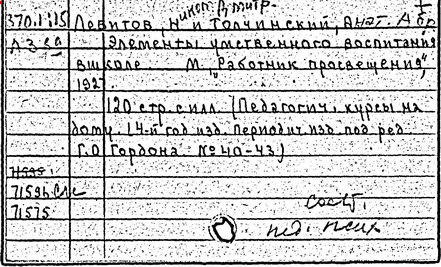 Никол. Дмитр.
370.1:15 Левитов, Н. и Толчинский, Анат. Абр.
Л 36а Элементы умственного воспитания
в школе М. "Работник просвещения",
192
120 стр. с илл. (Педагогич. курсы на
дому. 14-й год изд. Периодич. изд. под ред.
Г.О Гордона. № 40-43)
71595
71596
71575
сост.
пед. псих